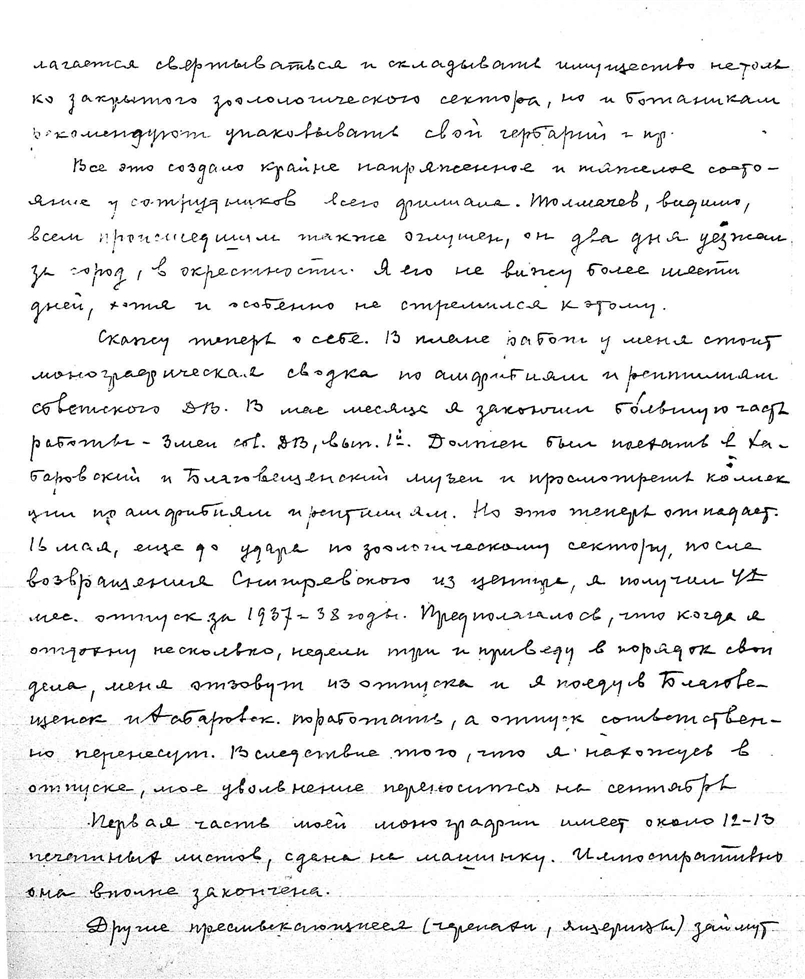 лагается свертываться и складывать имущество не толь
ко закрытого зоологического сектора, но и ботаникам
рекомендуют упаковывать свой гербарий и пр.
Все это создало крайне напряженное и тяжелое состо-
яние у сотрудников всего филиала. Толмачев, видимо,
всем происшедшим также оглушен, он два дня уезжал
за город, в окрестности. Я его не вижу более шести
дней, хотя и особенно не стремился к этому.
Скажу теперь о себе. В плане работ у меня стоит
монографическая сводка по амфибиям и рептилиям
советского ДВ. В мае месяце я закончил бо́льшую часть
работы - Змеи сов. ДВ, вып. 1й. Должен был поехать в Ха-
баровский и Благовещенский музеи и просмотреть коллек
ции по амфибиям и рептилиям. Но это теперь отпадает.
16 мая, еще до удара по зоологическому сектору, после
возвращения Снигиревского из центра, я получил 4х
мес. отпуск за 1937-38 годы. Предполагалось, что когда я
отдохну несколько, недели три и приведу в порядок свои
дела, меня отзовут из отпуска и я поеду в Благове-
щенск и Хабаровск поработать, а отпуск соответствен-
но перенесут. Вследствие того, что я нахожусь в
отпуске, мое увольнение переносится на сентябрь
Первая часть моей монографии имеет около 12-13
печатных листов, сдана на машинку. Иллюстративно
она вполне закончена.
Другие пресмыкающиеся (черепахи, ящерицы) займут